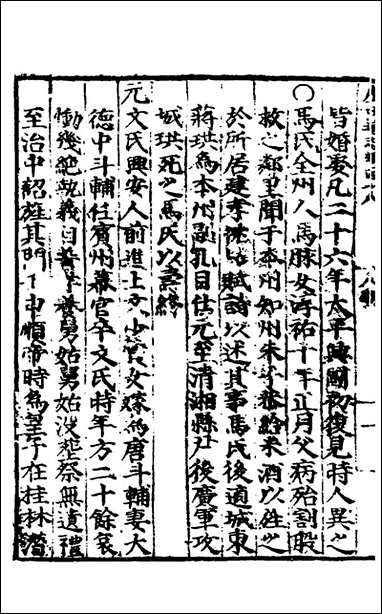 皆婚娶凡二十六年太平興國初復見時人異之
○馬氏全州人馬　女淳祐十年正月父病殆割股
救之鄰里聞于本州知州朱　　給米酒以　之
於所居建孝　坊賦詩以述其事馬氏後適城東
蔣珙爲本州　孔目仕元至清湘縣尹後廣軍攻
城珙死之馬氏以壽終
元文氏興安人前進士文　　女嫁爲唐斗輔妻大
德中斗輔任賓州幕官卒文氏時年方二十餘哀
慟幾絶執義自　　養舅姑舅姑沒葬祭無遺禮
至治中紹旌其門　中順帝時爲　子在桂林潛